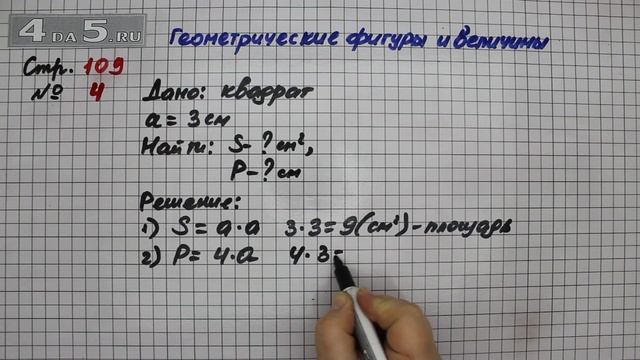 4DA5.RU
Геометрические фигуры и величины
Стр. 109
№ 4
Дано: квадрат
a = 3 см
Найти: S - ? см²,
P - ? см
Решение:
1) S = a · a 3 · 3 = 9 (см²) - площадь
2) P = 4 · a 4 · 3 =